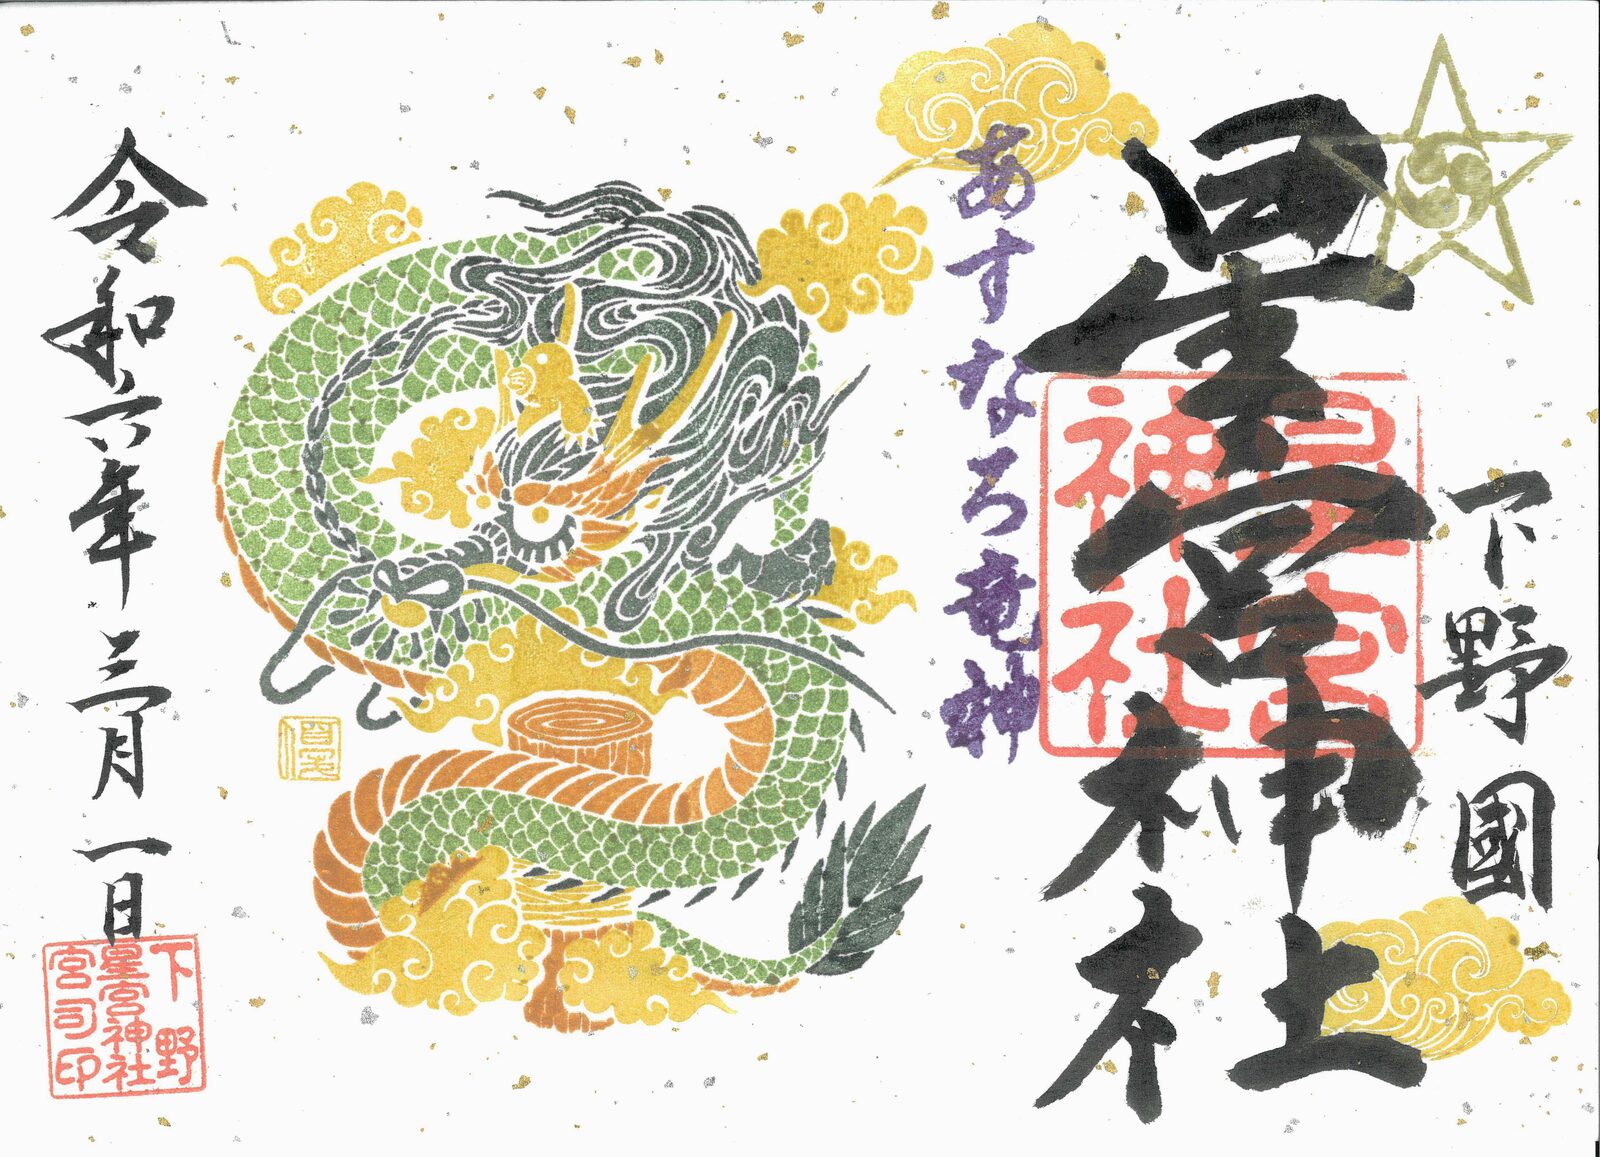 下野國
星宮神社
星宮
神社
あすなろ竜神
令和六年三月一日
下野
星宮神社
宮司印